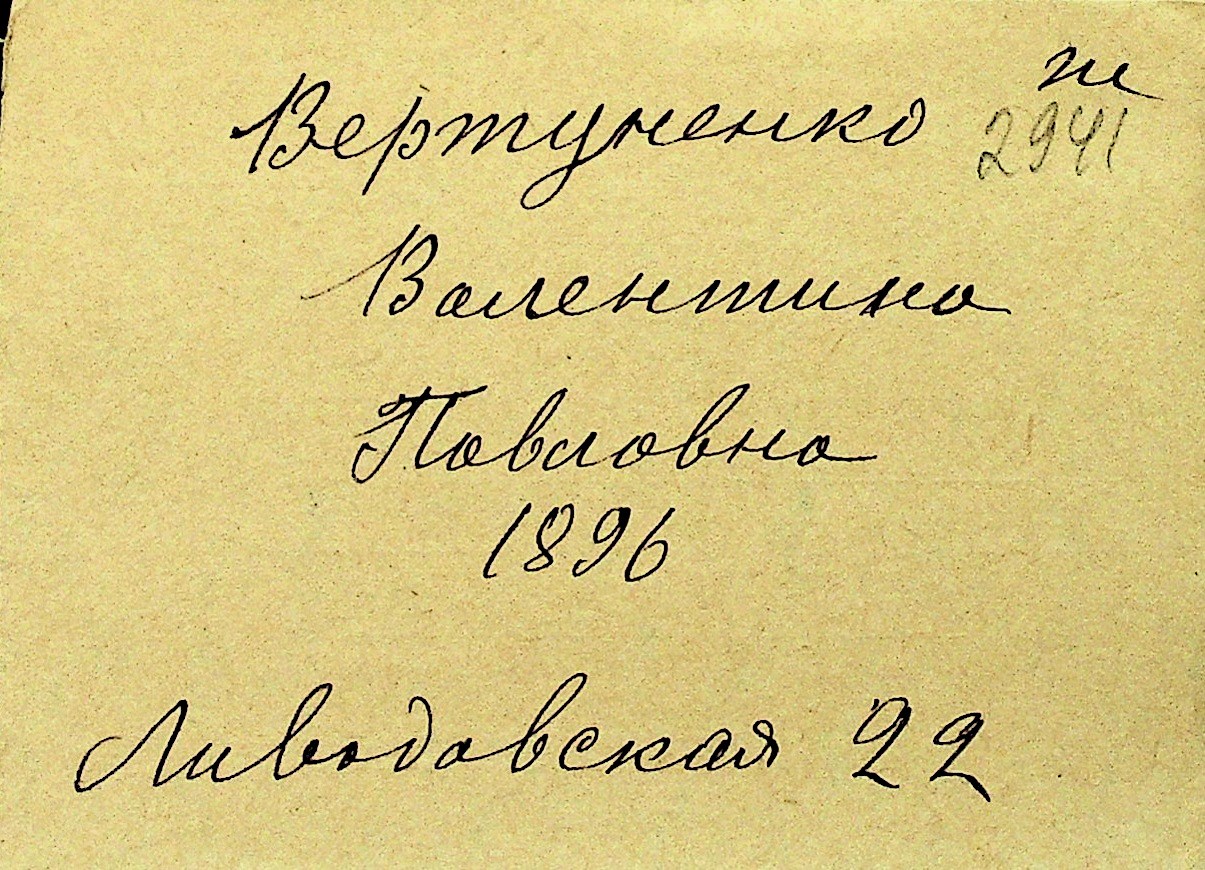 ж
Вертуненко 2941
Валентина
Павловна
1896
Ливодовская 22